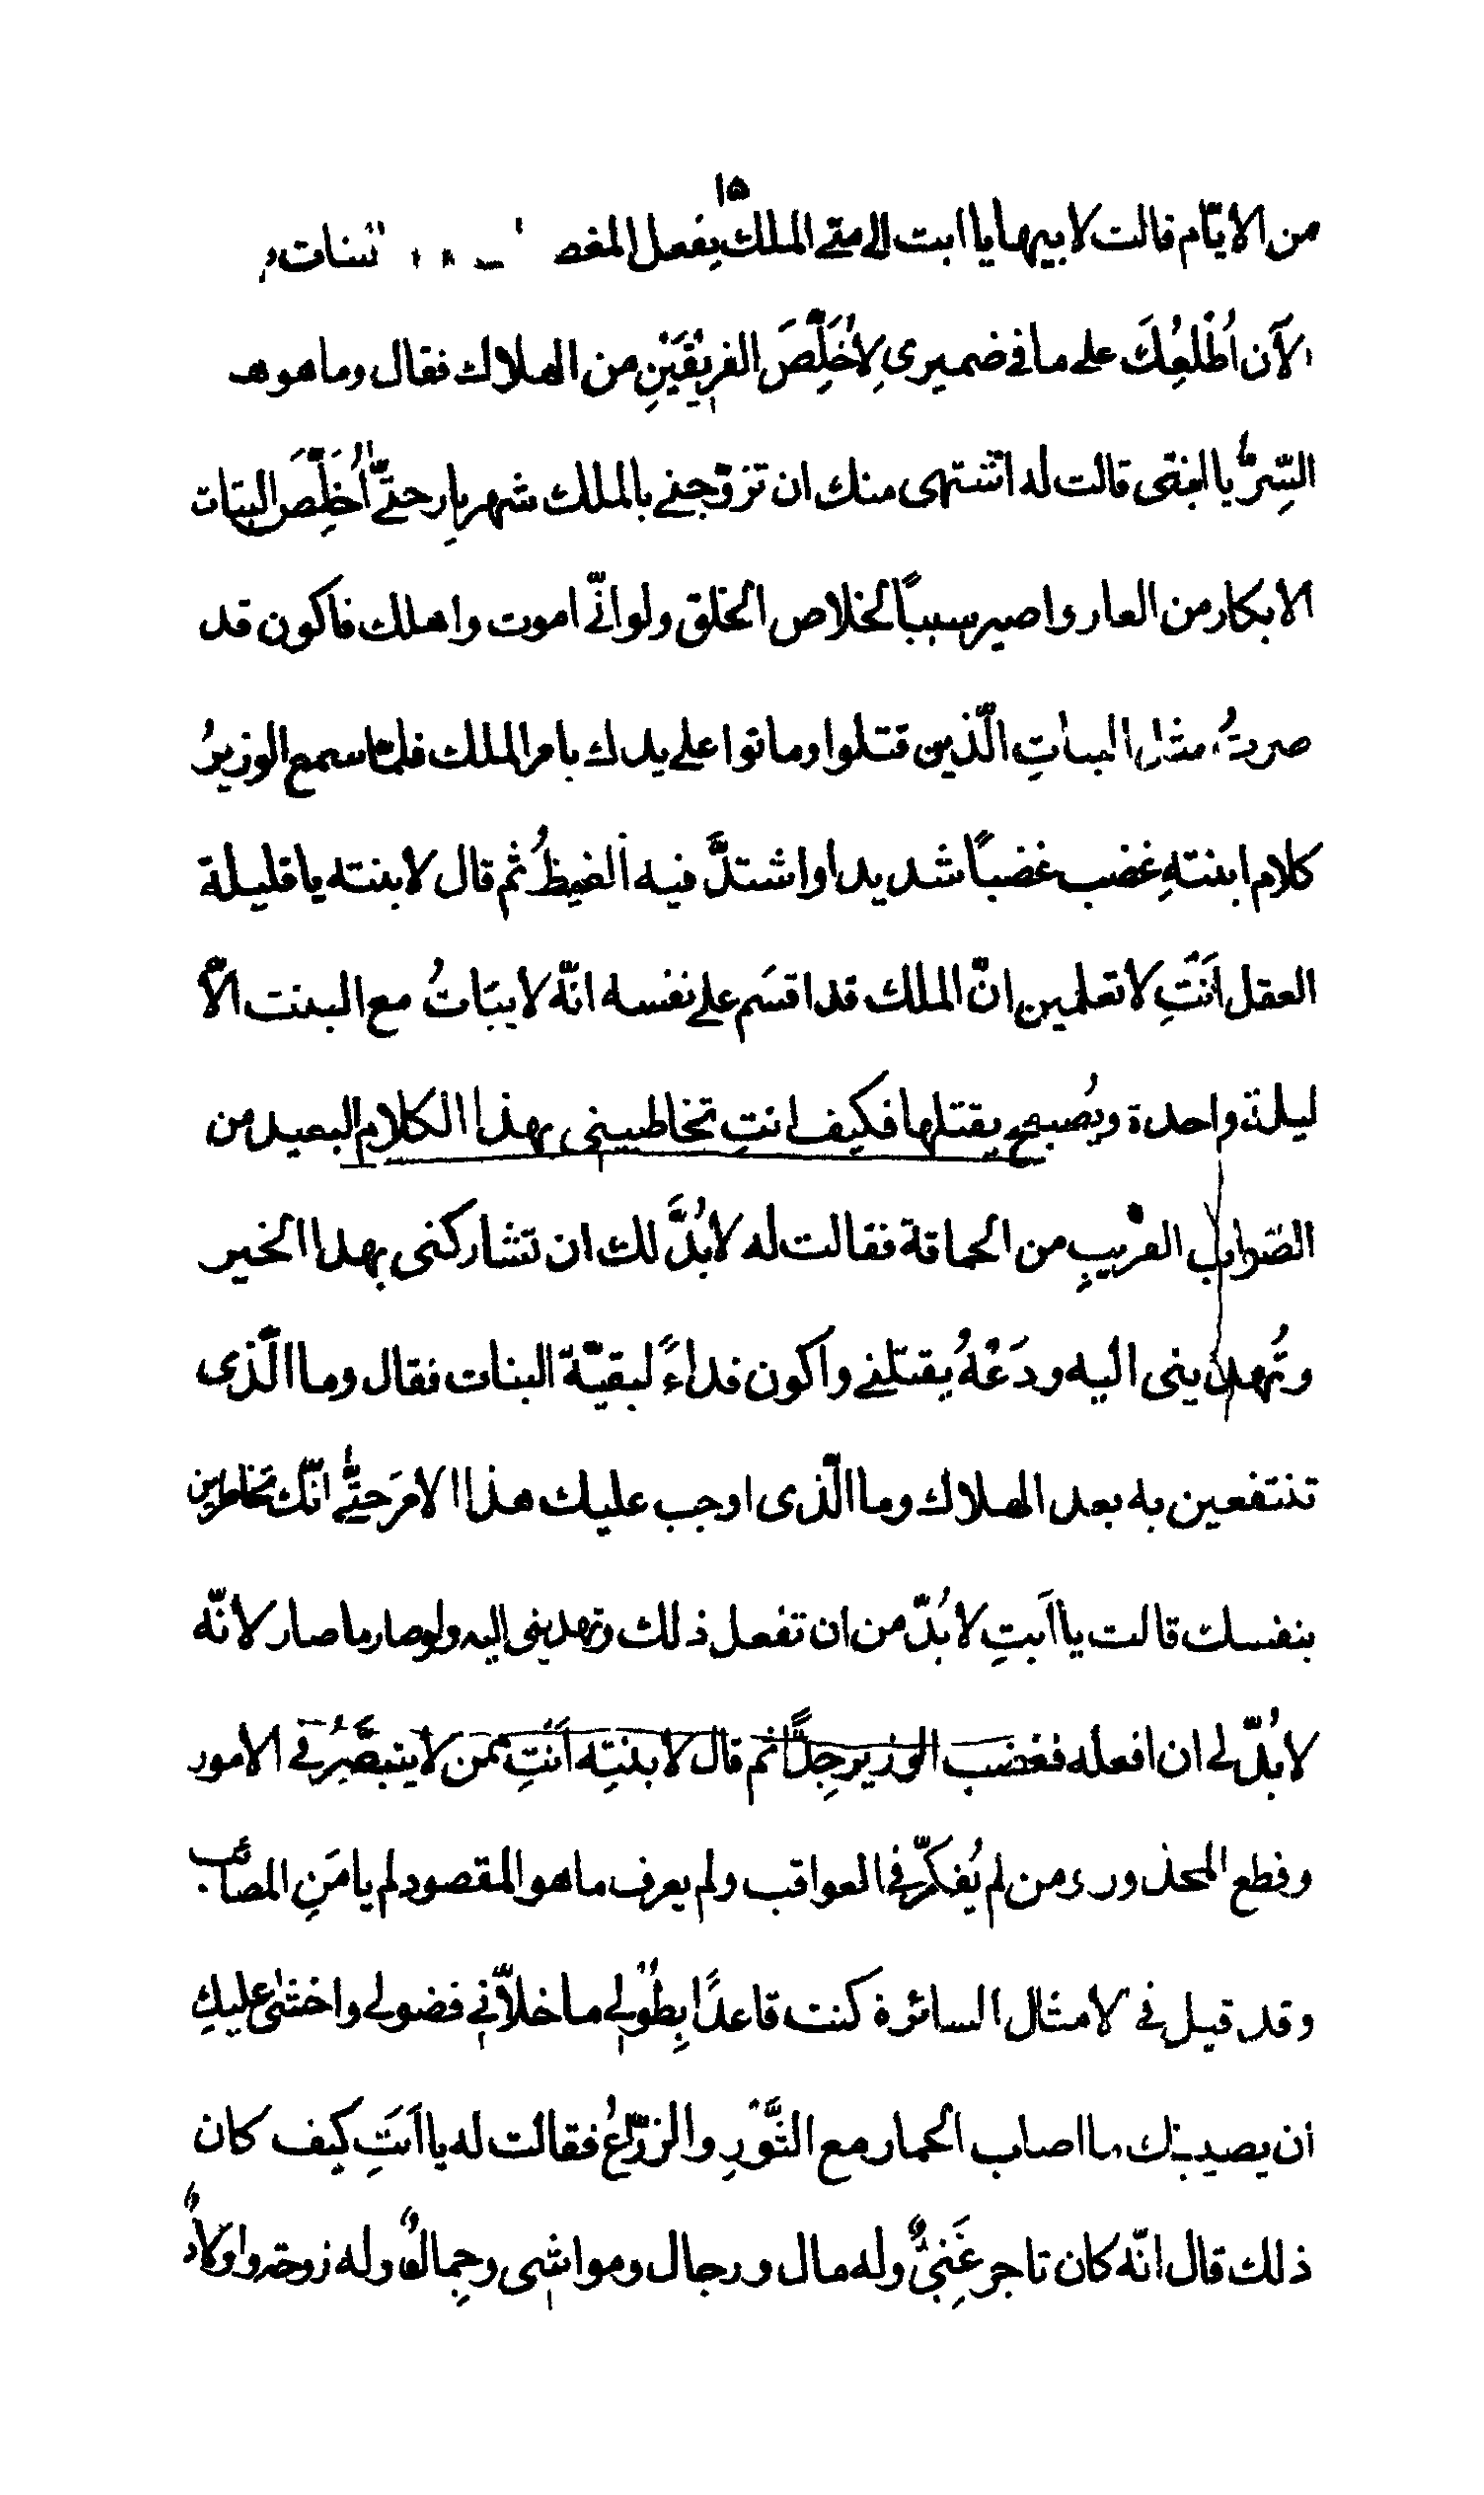 ١٥
من الايّام قالت لابيها يا ابت الى متى الملك يفعل
الآن اُطْلِعُكَ على ما في ضميرى لِاُخَلِّصَ الفَرِيقَيْنِ من الهلاك فقال وما هو هذ
السِرُّ يا ابنتى قالت له اشتهى منك ان تزوّجنى بالملك شهربار حتّى اُخَلِّصَ البنات
الابكار من العار واصير سببًا لخلاص الخلق ولو انّى اموت واهلك فاكون قد
صرتُ مثل البناتِ الّذين قتلوا وماتوا على يدك بامر الملك فلمّا سمع الوزيرُ
كلام ابنتهِ غضب غضبًا شديدا واشتدَّ فيه الغيظُ ثم قال لابنته يا قليلة
العقل اَنْتِ لا تعلمين انّ الملك قد اقسَم على نفسه انّه لا يبَاتُ مع البنت الّا
ليلة واحدة ويُصبح يقتلها فكيف انتِ تخاطبينى بهذا الكلام البعيد من
الصّواب القريبِ من الحماقة فقالت له لا بُدَّ لك ان تشاركنى بهذا الخير
وتُهدينى اليه ودَعْهُ يقتلنى واكون فداءً لبقيّة البنات فقال وما الّذى
تنتفعين به بعد الهلاك وما الّذى اوجب عليك هذا الامرَ حتّى انّك تخاطرين
بنفسك قالت يا اَبتِ لا بُدّ من ان تفعل ذلك وتهدينى اليه ولو صار ما صار لانّه
لا بُدّ لى ان افعله فغضب الوزير جِدًّا ثم قال لابنتِه اَنْتِ ممّن لا يتبصَّرُ فى الامور
وقطع المحذور ومن لم يُفكّر فى العواقب ولم يعرف ما هو المقصود لم يامَنِ المصائب
وقد قيل فى الامثال السائرة كنت قاعدًا بِطُولى ما خلّانى فضولى واخشى عليكِ
ان يصيبك ما اصاب الحمار مع الثَّوْرِ والزرّاعُ فقالت له يا اَبَتِ كيف كان
ذلك قال انّه كان تاجر غَنِىٌّ وله مال ورجال ومواشى وجِمالٌ وله زوجة واولادٌ